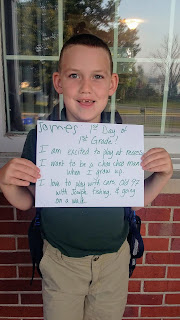 James 1st Day of
1st Grade!
I am excited to play at recess!
I want to be a choo choo man
when I grow up.
I love to play with cars,
with Joseph, fishing, & going
on a walk.